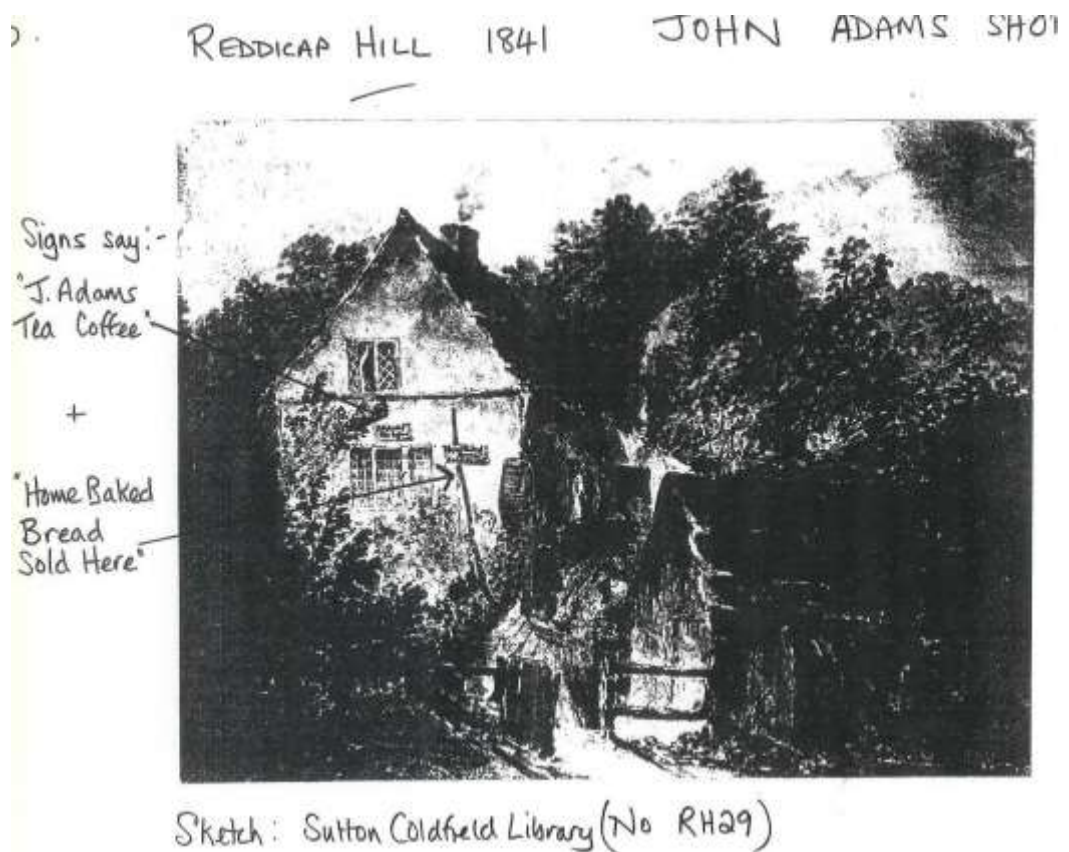 REDDICAP HILL 1841 JOHN ADAMS
Signs say:-
"J. Adams
Tea Coffee"
+
"Home Baked
Bread
Sold Here"
Sketch: Sutton Coldfield Library (No RH29)